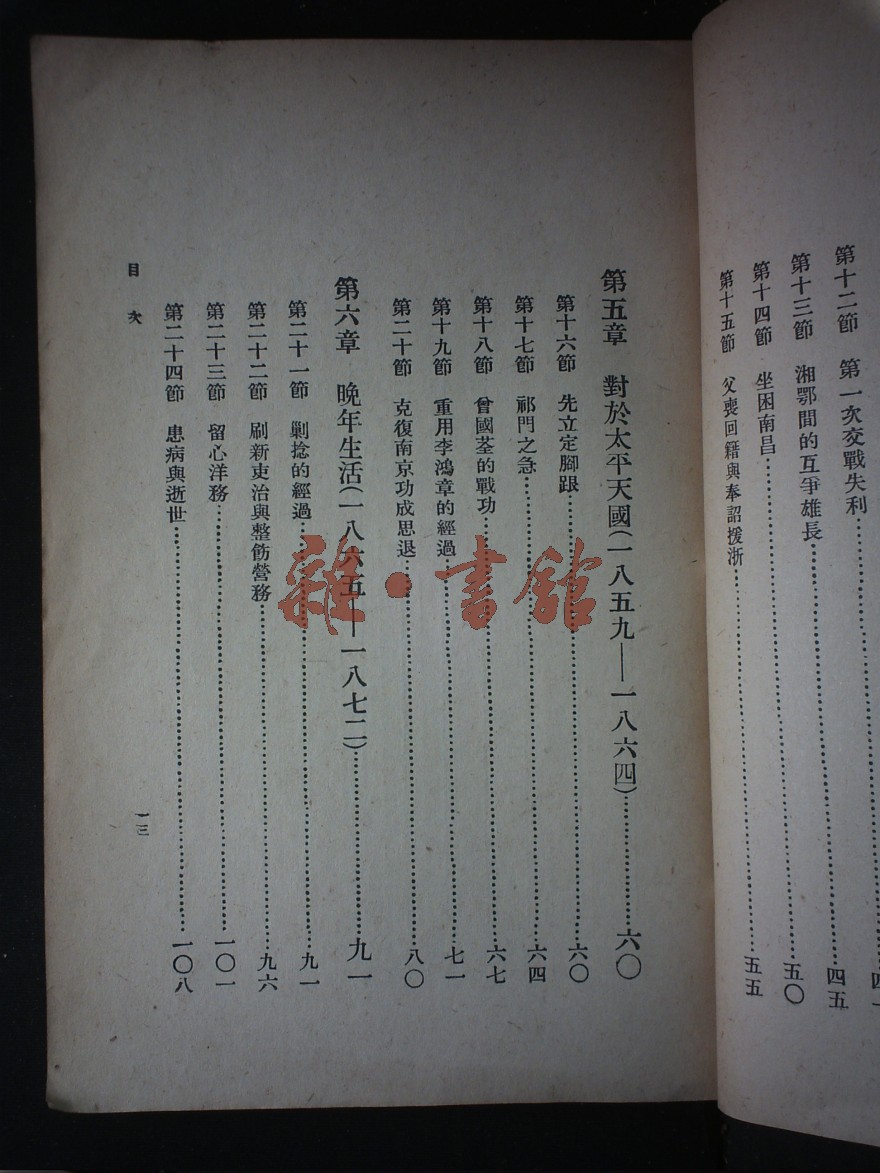 第十二節 第一次交戰失利……四
第十三節 湘鄂間的互爭雄長……四五
第十四節 坐困南昌……五〇
第十五節 父喪回籍與奉詔援浙……五五
第五章 對於太平天國(一八五九—一八六四)……六〇
第十六節 先立定腳跟……六〇
第十七節 祁門之急……六四
第十八節 曾國荃的戰功……六七
第十九節 重用李鴻章的經過……七一
第二十節 克復南京功成思退……八〇
第六章 晚年生活(一八六五—一八七二)……九一
第二十一節 剿捻的經過……九一
第二十二節 刷新吏治與整飭營務……九六
第二十三節 留心洋務……一〇一
第二十四節 患病與逝世……一〇八
目次
一三
雜·書館